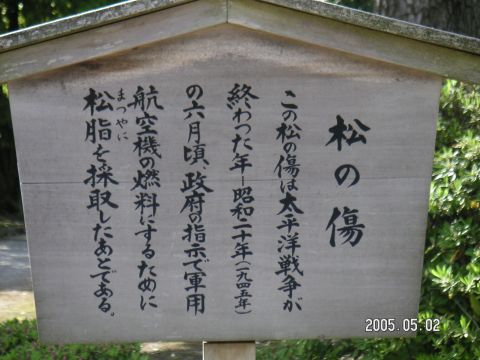 松の傷
この松の傷は太平洋戦争が
終わった年－昭和二十年(一九四五年)
の六月頃、政府の指示で軍用
航空機の燃料にするために
松脂を採取したあとである。
まつやに
2005.05.02